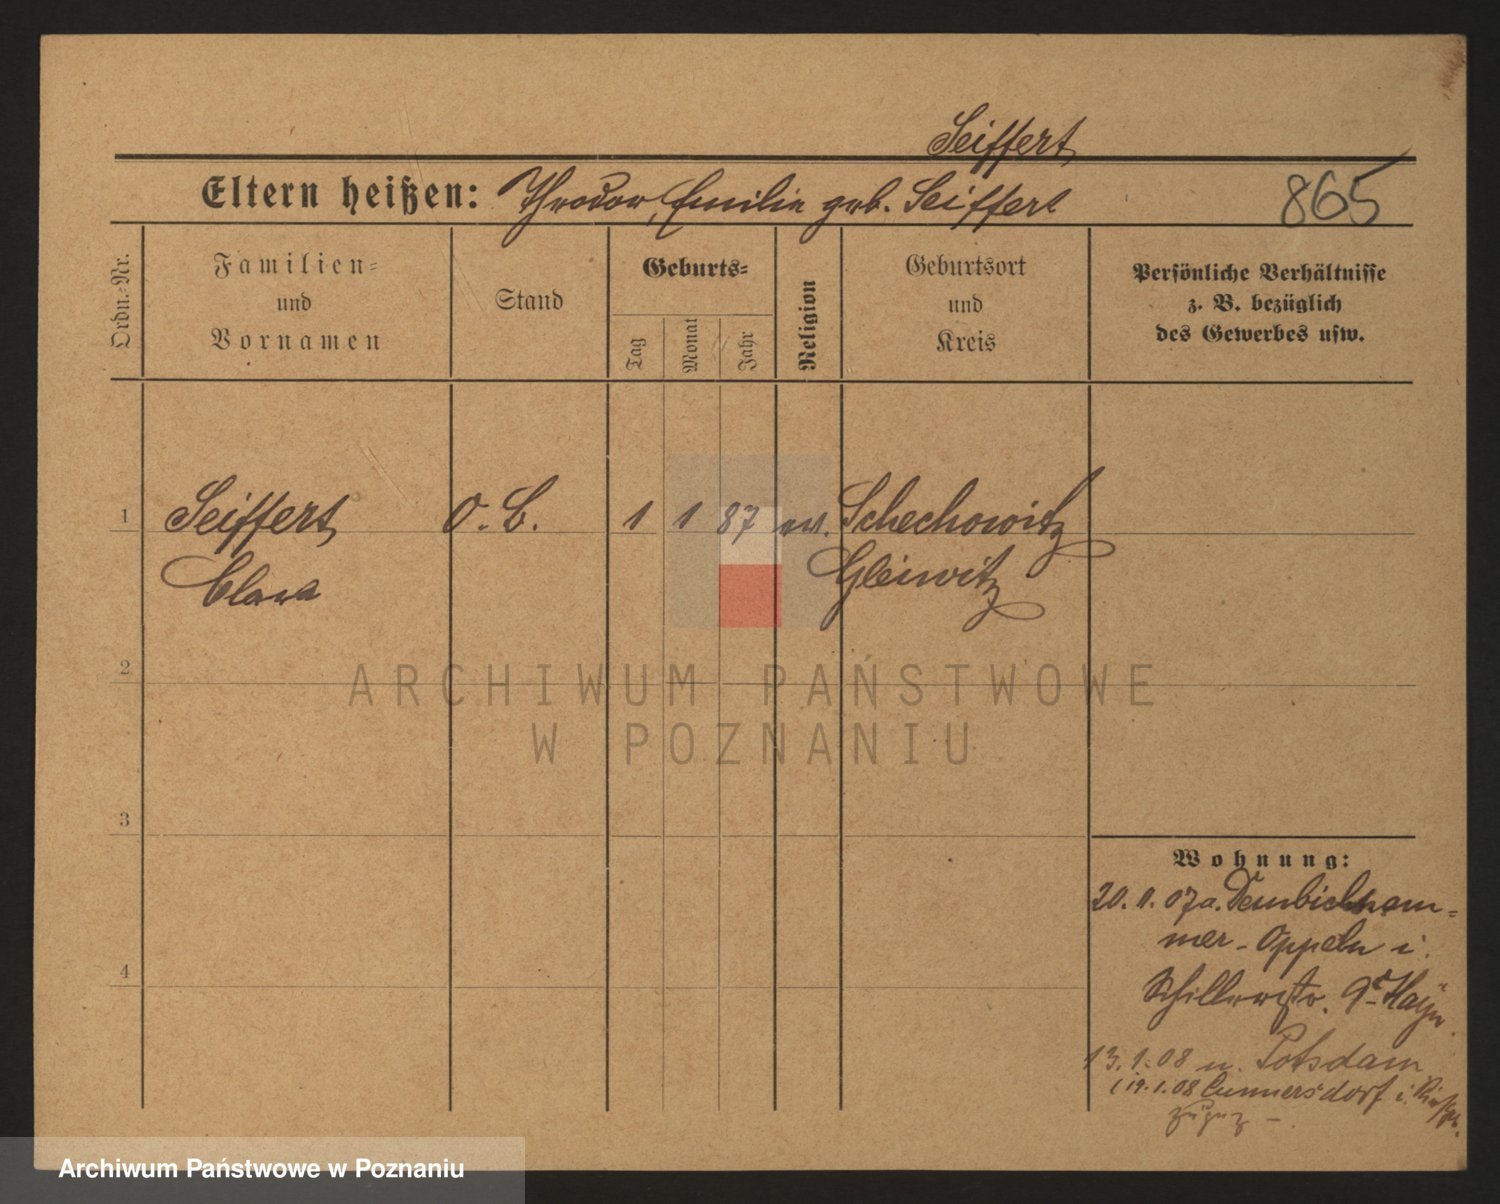 Seiffert
Eltern heißen: Theodor, Emilie geb. Seiffert
865
Ordn.-Nr.
Familien-
und
Vornamen
Stand
Geburts-
Tag
Monat
Jahr
Religion
Geburtsort
und
Kreis
Persönliche Verhältnisse
z. B. bezüglich
des Gewerbes usw.
1 Seiffert O. B. 1 1 87 ev. Schechowitz
Clara Gleiwitz
2
ARCHIWUM PAŃSTWOWE
W POZNANIU
3
Wohnung:
20. 11. 07 a. Dembiohammer-
mer - Oppeln i.
Schillerstr. 9
4
13. 1. 08 n. Potsdam
19. 1. 08 Cunnersdorf i.
Archiwum Państwowe w Poznaniu